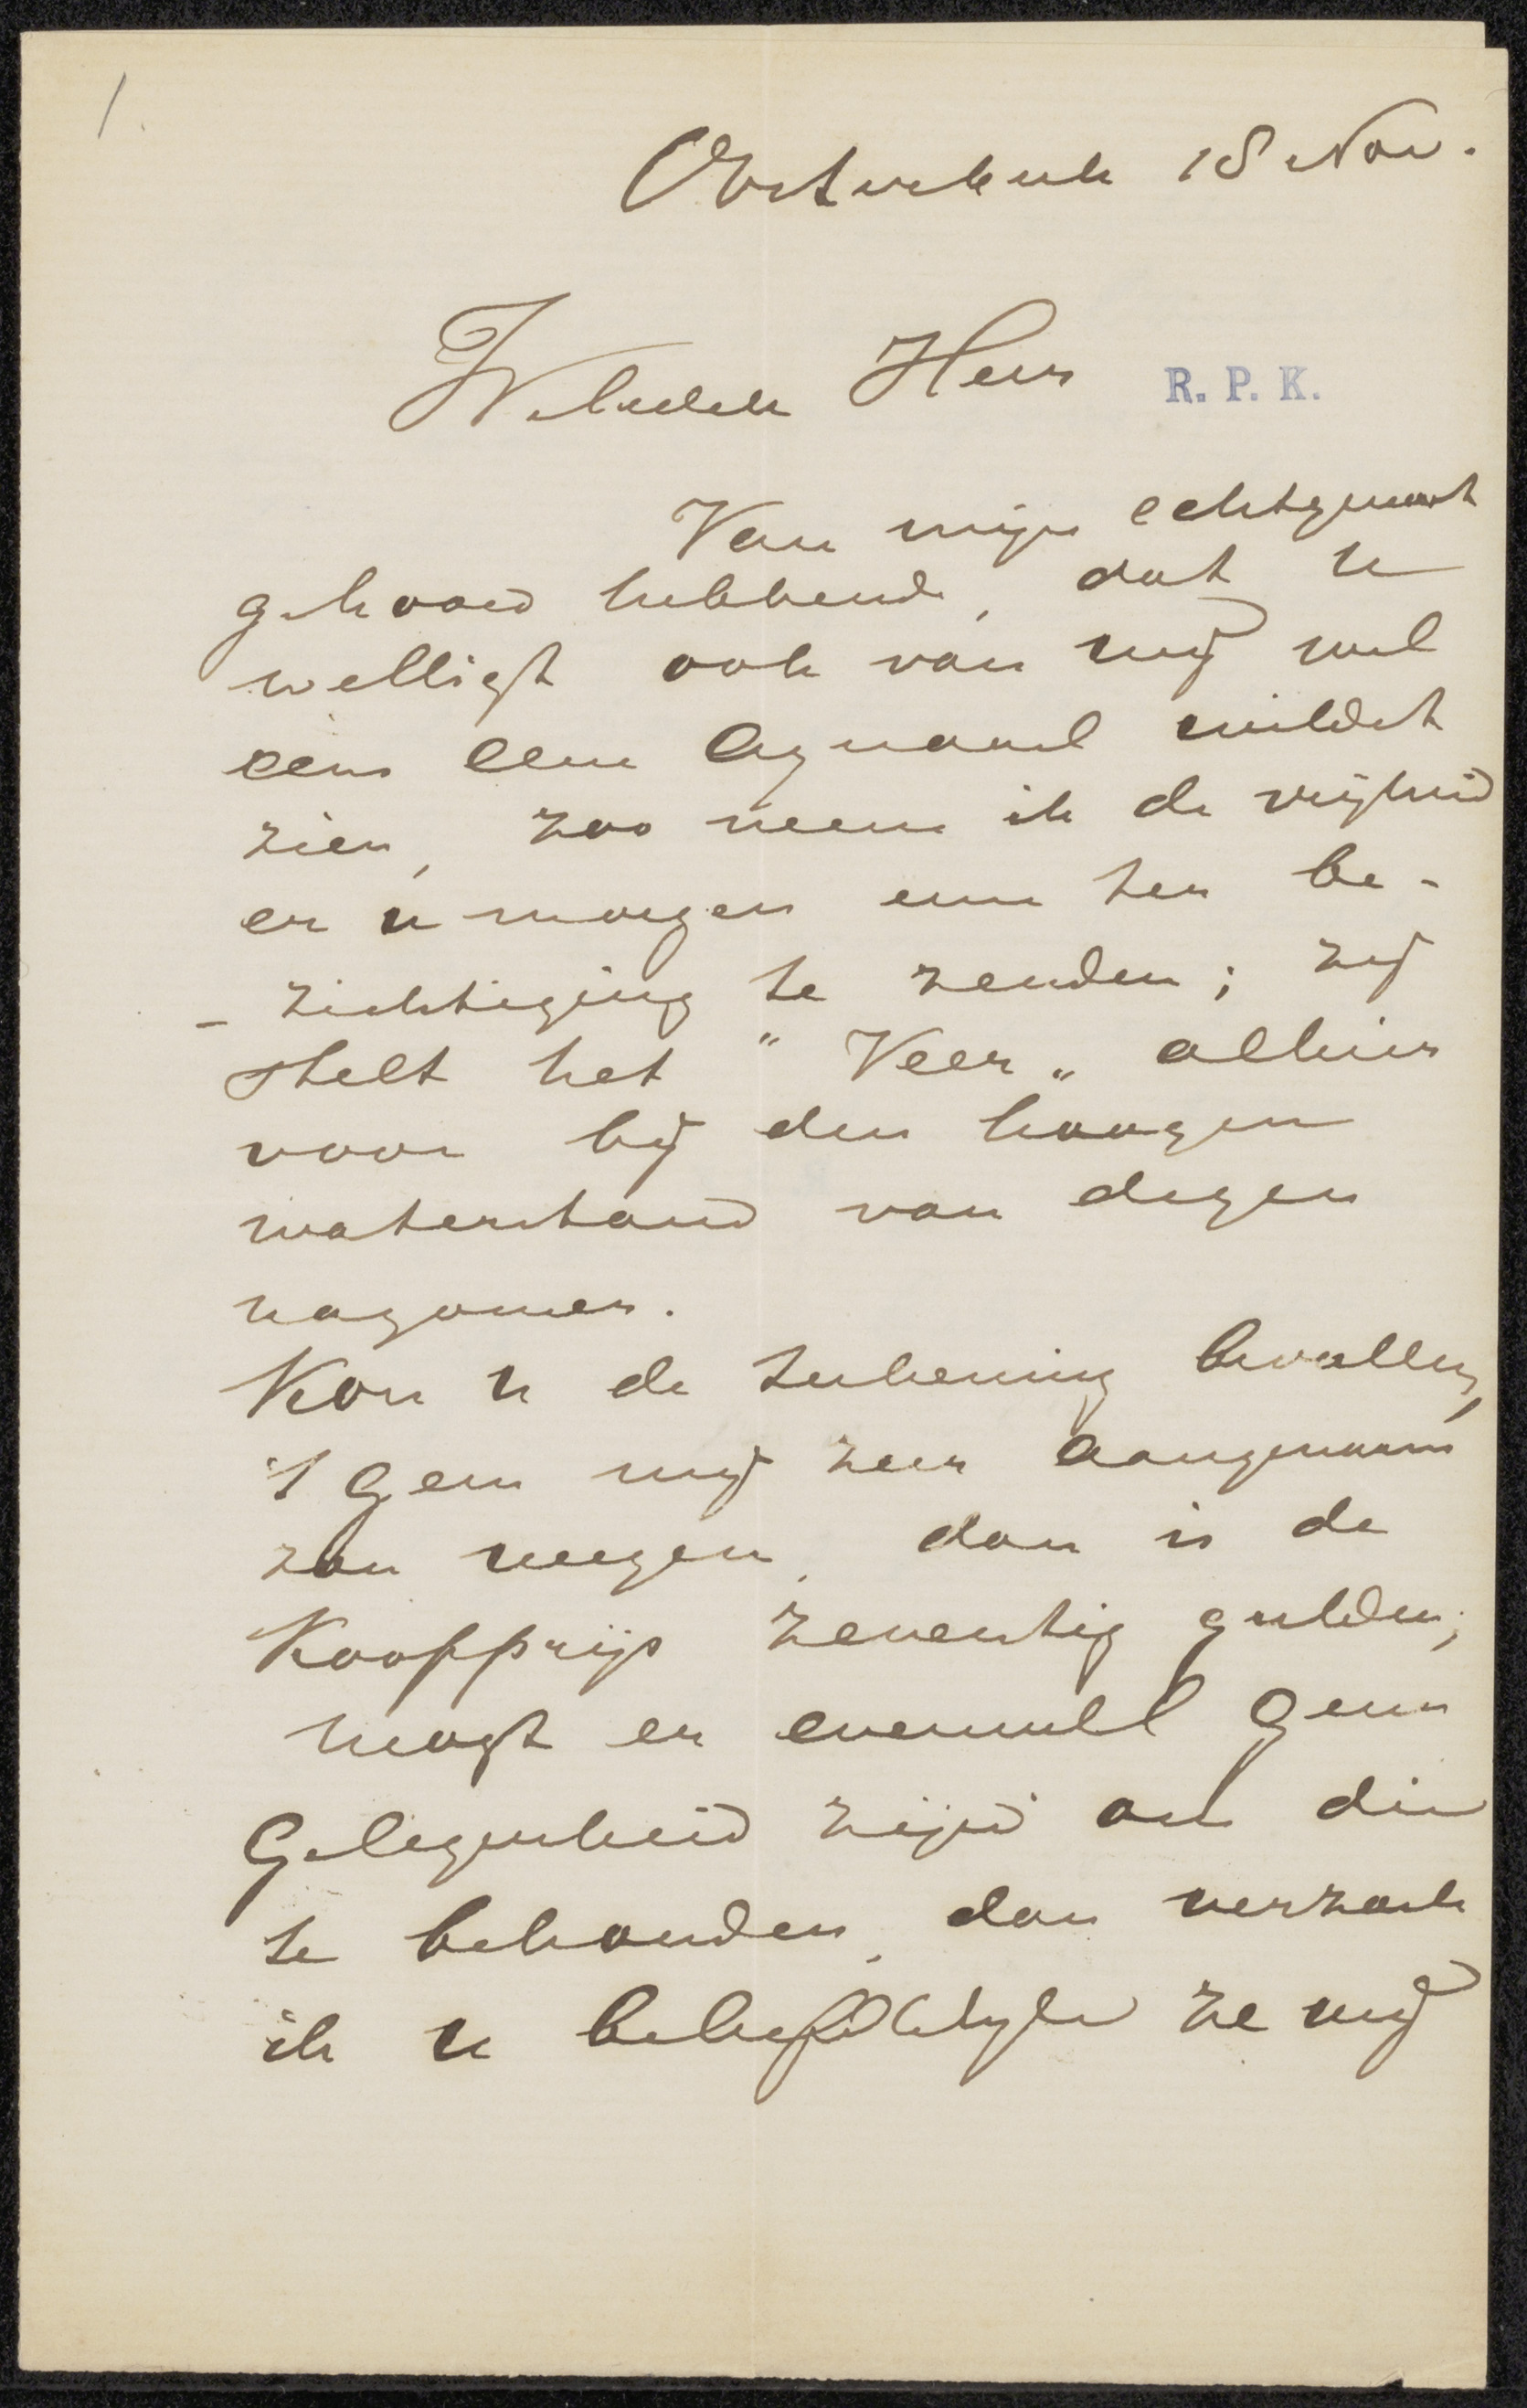 1.
Oosterbeek 18 Nov.
WelEdele Heer
R. P. K.
Van mijn echtgenoot
gehoord hebbende, dat u
welligt ook van mij wel
eens een aquarel wildet
zien, zoo neem ik de vrijheid
er u morgen een ter be-
- zichtiging te zenden; zij
stelt het " Veer „ alhier
voor bij den hoogen
waterstand van dezen
nazomer.
Kon u de teekening bevallen,
't geen mij zeer aangenaam
zou wezen, dan is de
Koopprijs zeventig gulden;
mogt er evenwel geen
Gelegenheid zijn om die
te behouden, dan verzoek
ik u beleefdelijk ze mij